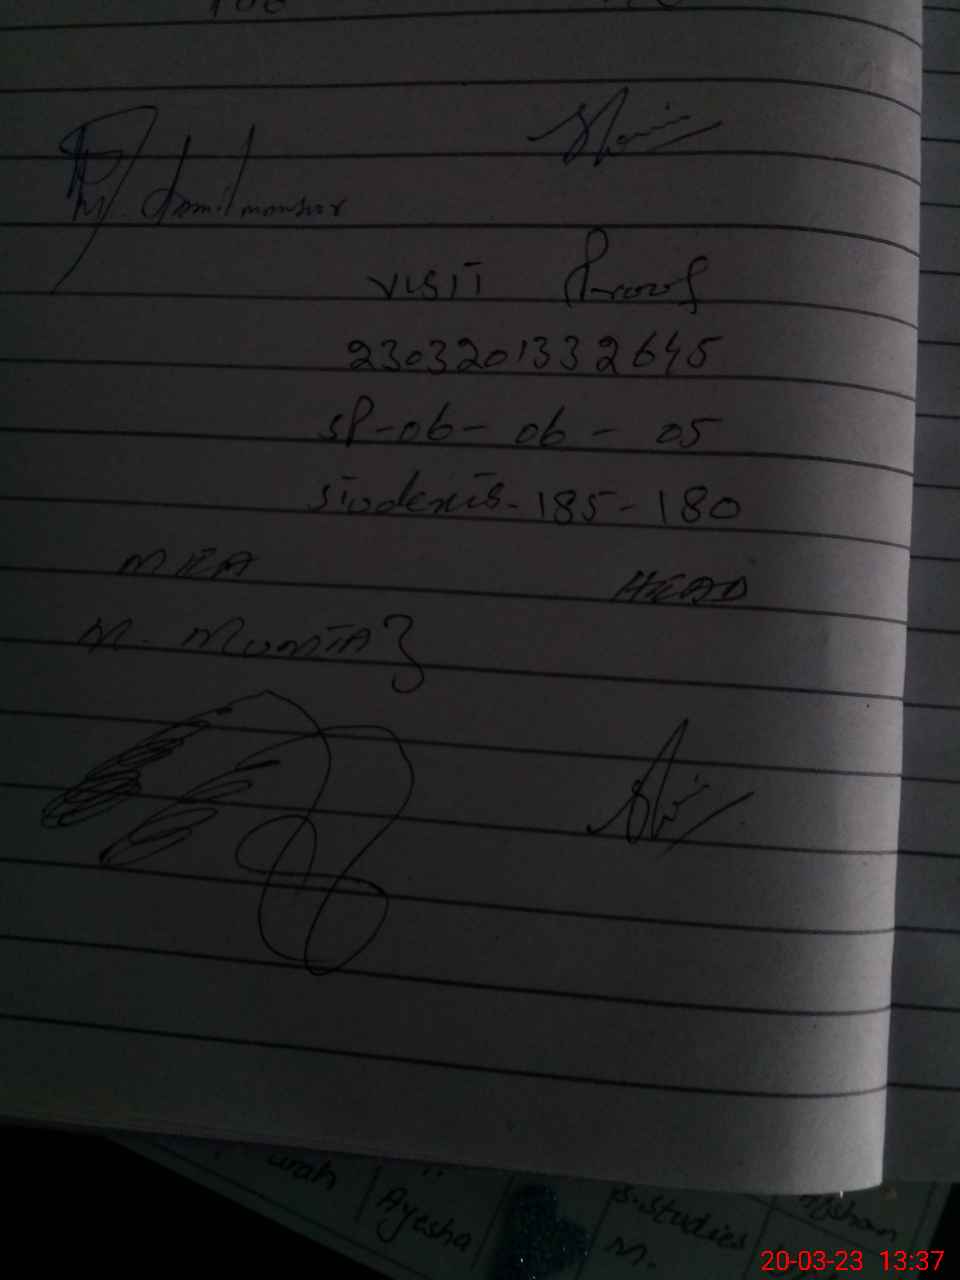 Jamil mansoor
VISIT Proof
2303201332645
SP-06-06-05
Students-185-180
MEA HEAD
M. MUMTAZ
Ayesha
S.Studies
M.
20-03-23 13:37